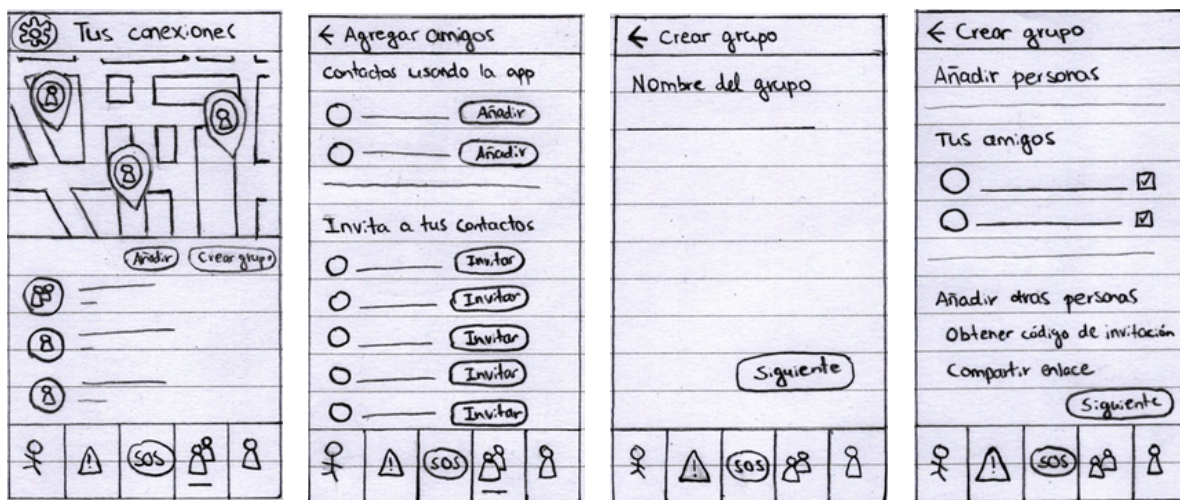 Tus conexiones
Añadir
Crear grupo
SOS
Agregar amigos
Contactos usando la app
Añadir
Añadir
Invita a tus contactos
Invitar
Invitar
Invitar
Invitar
Invitar
SOS
Crear grupo
Nombre del grupo
Siguiente
SOS
Crear grupo
Añadir personas
Tus amigos
Añadir otras personas
Obtener código de invitación
Compartir enlace
Siguiente
SOS